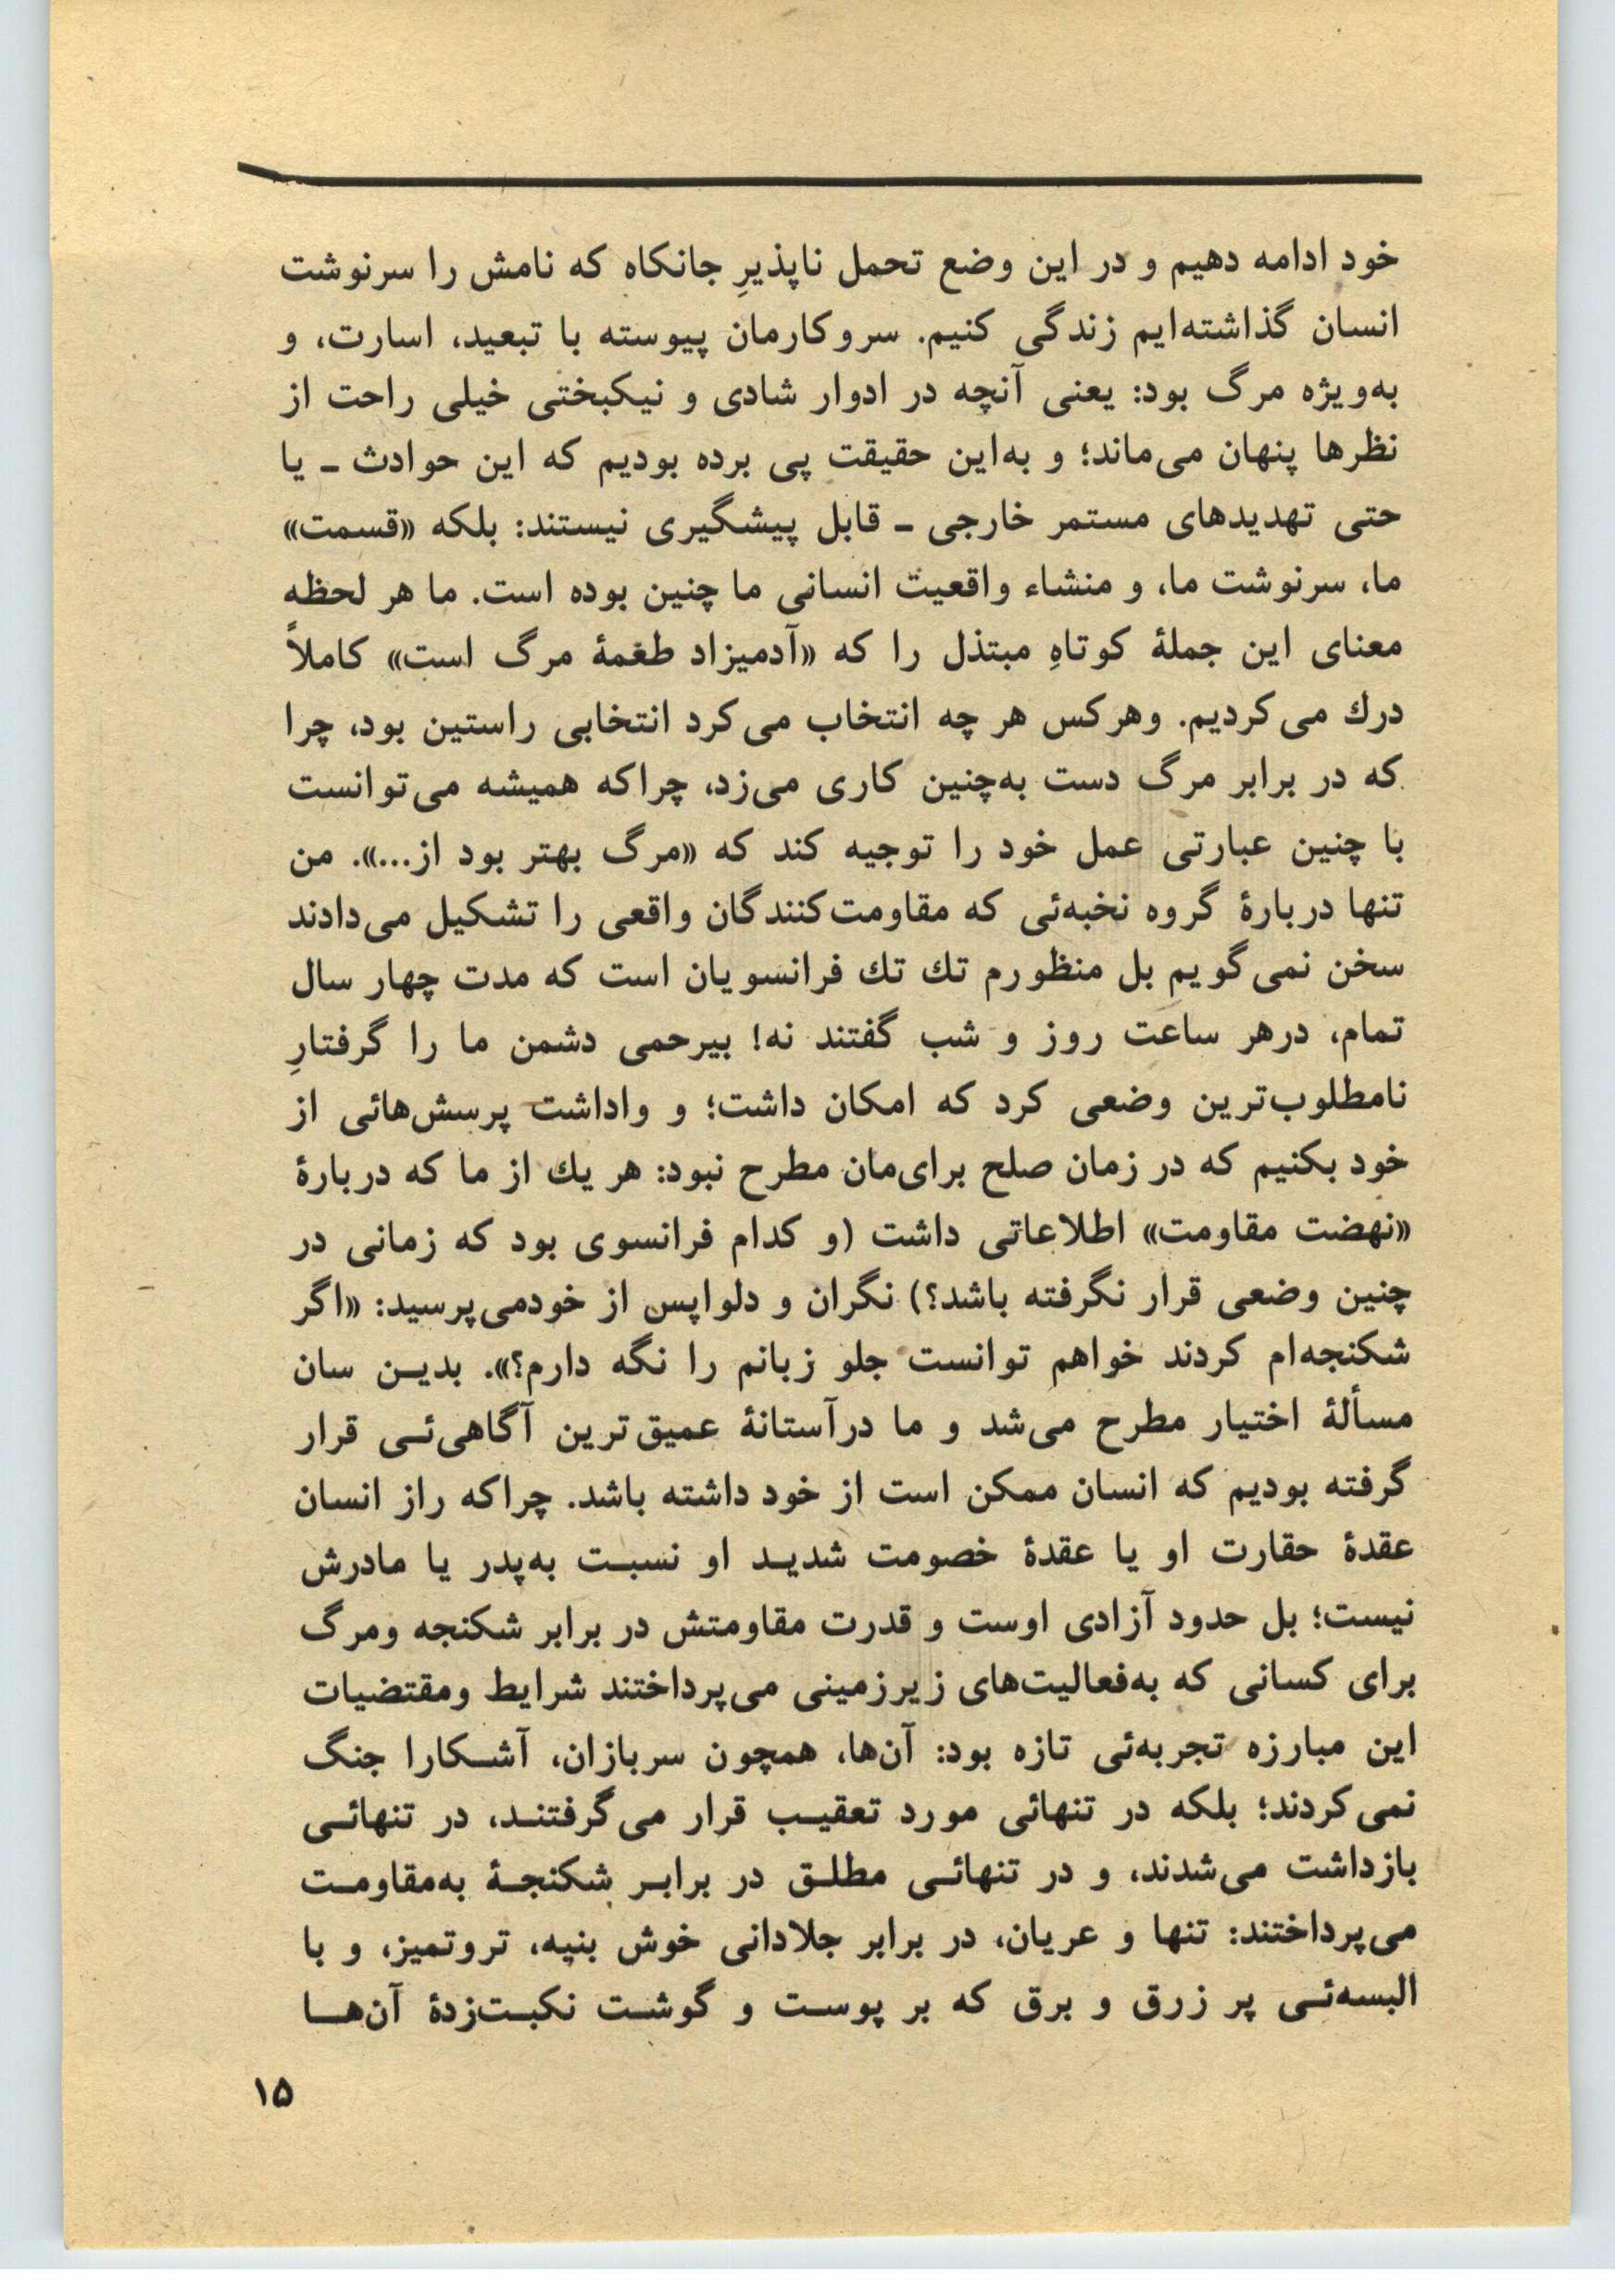 خود ادامه دهیم و در این وضع تحمل ناپذیرِ جانکاه که نامش را سرنوشت
انسان گذاشته‌ایم زندگی کنیم. سروکارمان پیوسته با تبعید، اسارت، و
به‌ویژه مرگ بود: یعنی آنچه در ادوار شادی و نیکبختی خیلی راحت از
نظرها پنهان می‌ماند؛ و به‌این حقیقت پی برده بودیم که این حوادث ـ یا
حتی تهدیدهای مستمر خارجی ـ قابل پیشگیری نیستند: بلکه «قسمت»
ما، سرنوشت ما، و منشاء واقعیت انسانی ما چنین بوده است. ما هر لحظه
معنای این جملهٔ کوتاهِ مبتذل را که «آدمیزاد طعمهٔ مرگ است» کاملاً
درك می‌کردیم. وهرکس هر چه انتخاب می‌کرد انتخابی راستین بود، چرا
که در برابر مرگ دست به‌چنین کاری می‌زد، چراکه همیشه می‌توانست
با چنین عبارتی عمل خود را توجیه کند که «مرگ بهتر بود از...». من
تنها دربارهٔ گروه نخبه‌ئی که مقاومت‌کنندگان واقعی را تشکیل می‌دادند
سخن نمی‌گویم بل منظورم تك تك فرانسویان است که مدت چهار سال
تمام، درهر ساعت روز و شب گفتند نه! بیرحمی دشمن ما را گرفتارِ
نامطلوب‌ترین وضعی کرد که امکان داشت؛ و واداشت پرسش‌هائی از
خود بکنیم که در زمان صلح برای‌مان مطرح نبود: هر یك از ما که دربارهٔ
«نهضت مقاومت» اطلاعاتی داشت (و کدام فرانسوی بود که زمانی در
چنین وضعی قرار نگرفته باشد؟) نگران و دلواپس از خودمی‌پرسید: «اگر
شکنجه‌ام کردند خواهم توانست جلو زبانم را نگه دارم؟». بدیـن سان
مسألهٔ اختیار مطرح می‌شد و ما درآستانهٔ عمیق‌ترین آگاهی‌ئـی قرار
گرفته بودیم که انسان ممکن است از خود داشته باشد. چراکه راز انسان
عقدهٔ حقارت او یا عقدهٔ خصومت شدیـد او نسبـت به‌پدر یا مادرش
نیست؛ بل حدود آزادی اوست و قدرت مقاومتش در برابر شکنجه ومرگ
برای کسانی که به‌فعالیت‌های زیرزمینی می‌پرداختند شرایط ومقتضیات
این مبارزه تجربه‌ئی تازه بود: آن‌ها، همچون سربازان، آشـکارا جنگ
نمی‌کردند؛ بلکه در تنهائی مورد تعقیـب قرار می‌گرفتنـد، در تنهائـی
بازداشت می‌شدند، و در تنهائـی مطلـق در برابـر شکنجـهٔ به‌مقاومـت
می‌پرداختند: تنها و عریان، در برابر جلادانی خوش بنیه، تروتمیز، و با
البسه‌ئـی پر زرق و برق که بر پوسـت و گوشـت نکبـت‌زدهٔ آن‌هـا
۱۵